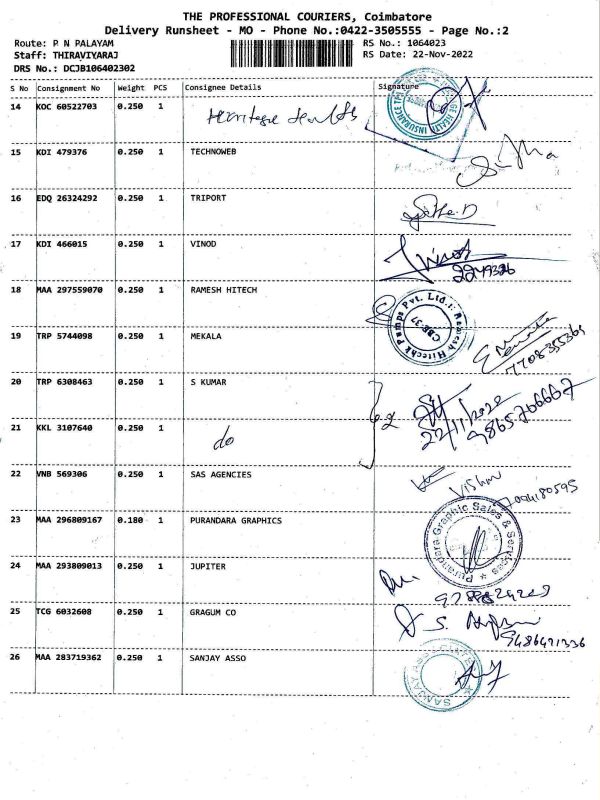 THE PROFESSIONAL COURIERS, Coimbatore
Delivery Runsheet - MO - Phone No.:0422-3505555 - Page No.:2
Route: P N PALAYAM RS No.: 1064023
Staff: THIRAVIYARAJ RS Date: 22-Nov-2022
DRS No.: DCJB106402302
S No Consignment No Weight PCS Consignee Details Signature
14 KOC 60522703 0.250 1
15 KDI 479376 0.250 1 TECHNOWEB
16 EDQ 26324292 0.250 1 TRIPORT
17 KDI 466015 0.250 1 VINOD
Vinod
2249326
18 MAA 297559070 0.250 1 RAMESH HITECH
Ramesh Hitech Pumps Pvt. Ltd.
CBE-37
19 TRP 5744098 0.250 1 MEKALA
7708355369
20 TRP 6308463 0.250 1 S KUMAR
22/11/2022
9865766667
21 KKL 3107640 0.250 1 do
22 VNB 569306 0.250 1 SAS AGENCIES
Vishnu
7094180595
23 MAA 296809167 0.180 1 PURANDARA GRAPHICS
Purandara Graphic Sales & Services
24 MAA 293809013 0.250 1 JUPITER
25 TCG 6032608 0.250 1 GRAGUM CO
9486471336
26 MAA 283719362 0.250 1 SANJAY ASSO
SANJAY ASSOCIATES